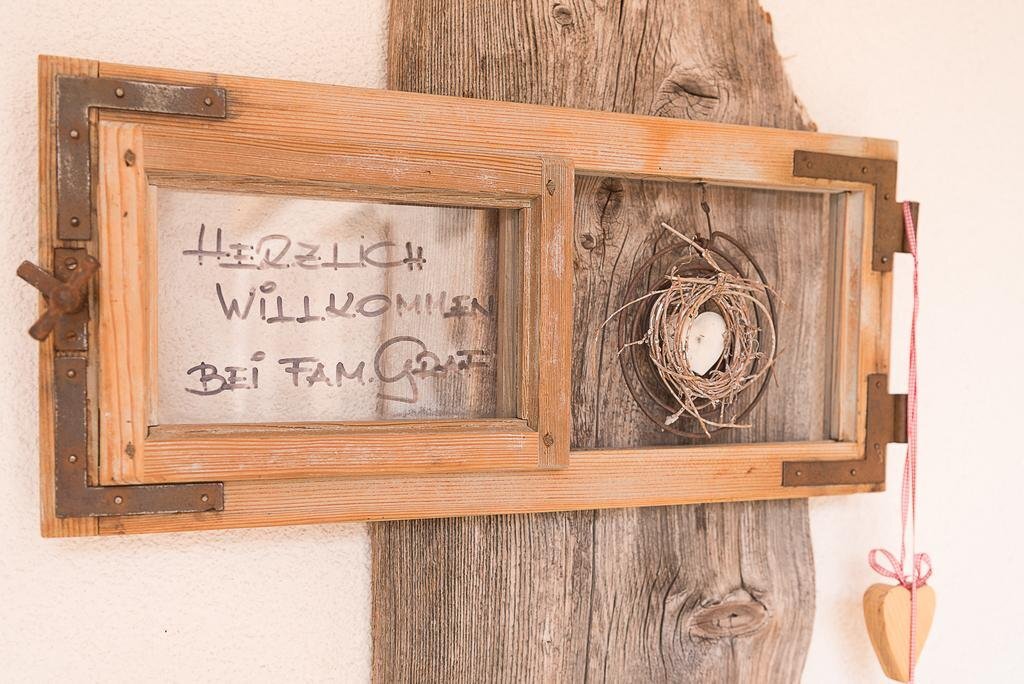 HERZLICH
WiLLKOMMEN
BEi FAM. GRAF